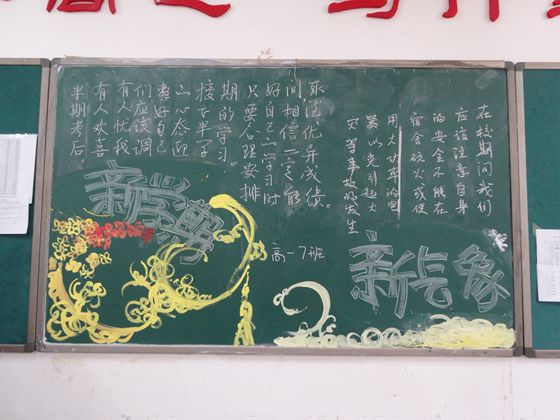 半期考后，
有人欢喜
有人忧我
们应该调
整好自己
的心态迎
接下半学
期的学习。
只要合理安排
好自己的学习时
间相信一定能
取得优异成绩。
新学期
高一7班
在校期间我们
应该注意自身
的安全不能在
宿舍玩火或使
用大功率的电
器以免引起火
灾等事故的发生
新气象